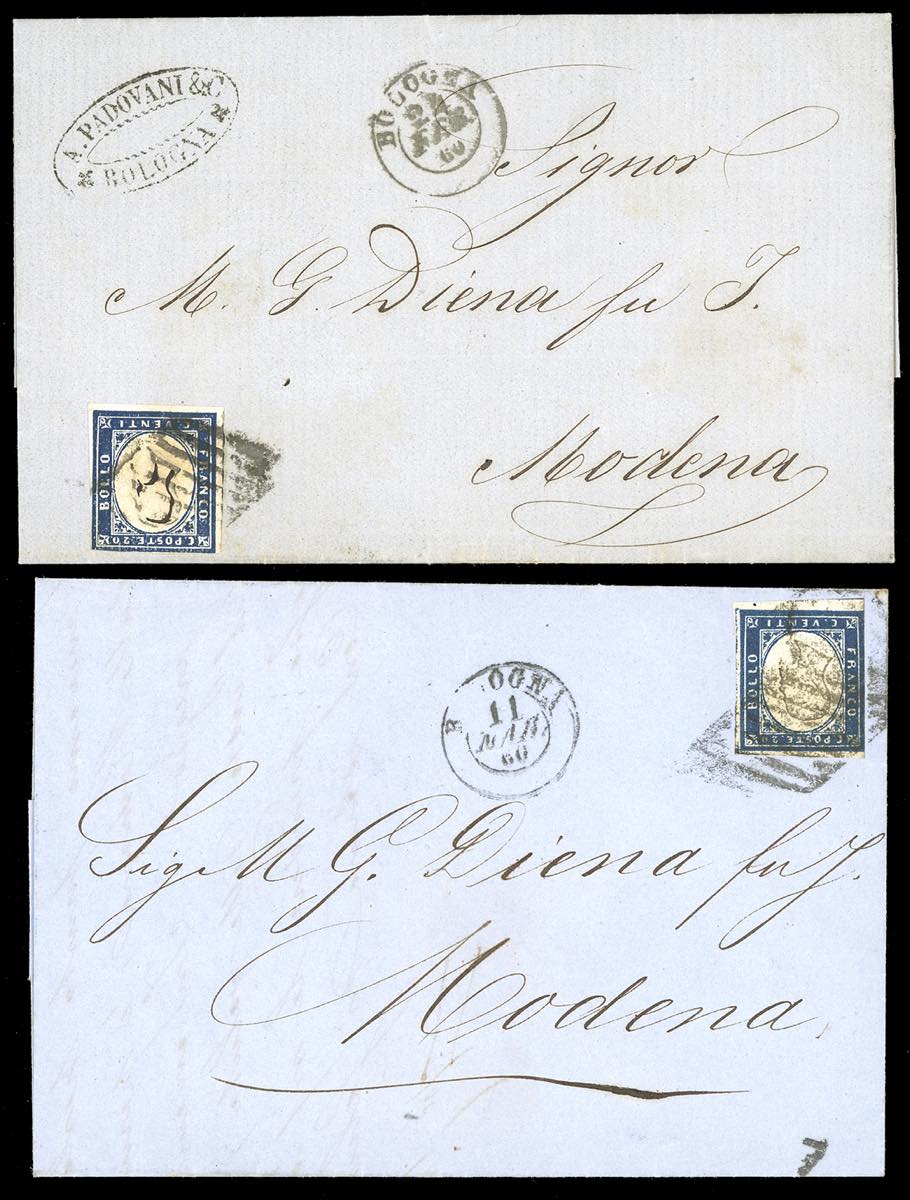 A. PADOVANI & C
BOLOGNA
BOLOGNA
MAR
60
Signor
M. G. Diena fu J.
Modena
C. VENTI
BOLLO
FRANCO
C. POSTE 20
C. VENTI
BOLLO
FRANCO
C. POSTE 20
B OGNA
11
MAR
60
Sig M G. Diena fu J.
Modena